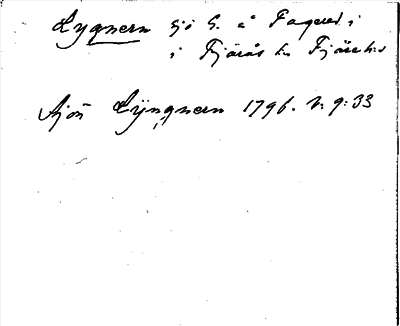 Lygnern sjö S. å Fagered i
i Fjärås sn Fjäre hd
Sjön Lÿngnern 1796. n: 9: 33